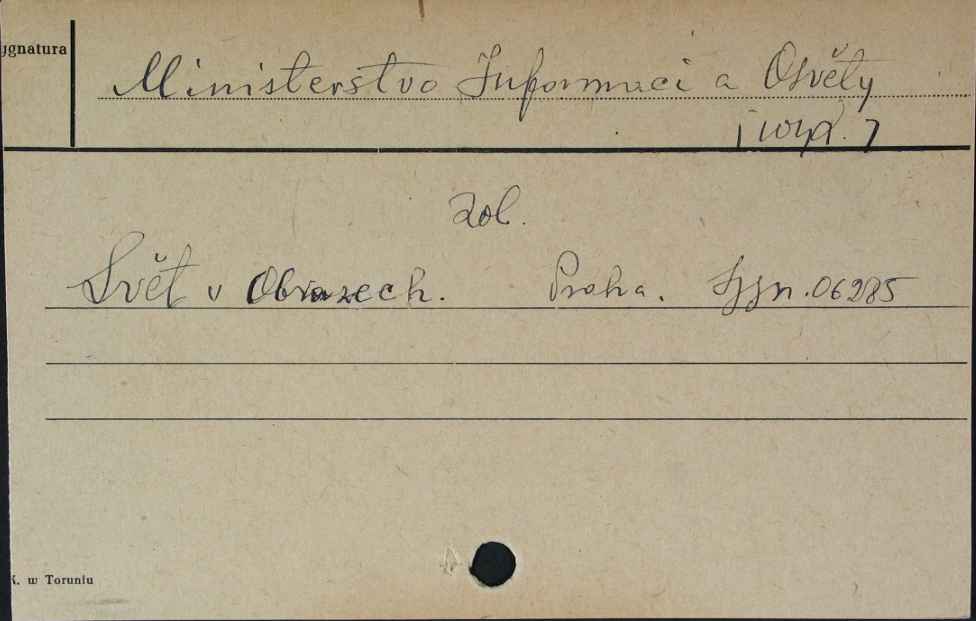 ygnatura
Ministerstvo Informaci a Osvěty
[wyd.]
zob.
Svět v Obrazech. Praha. Sygn. 06285
K. w Toruniu